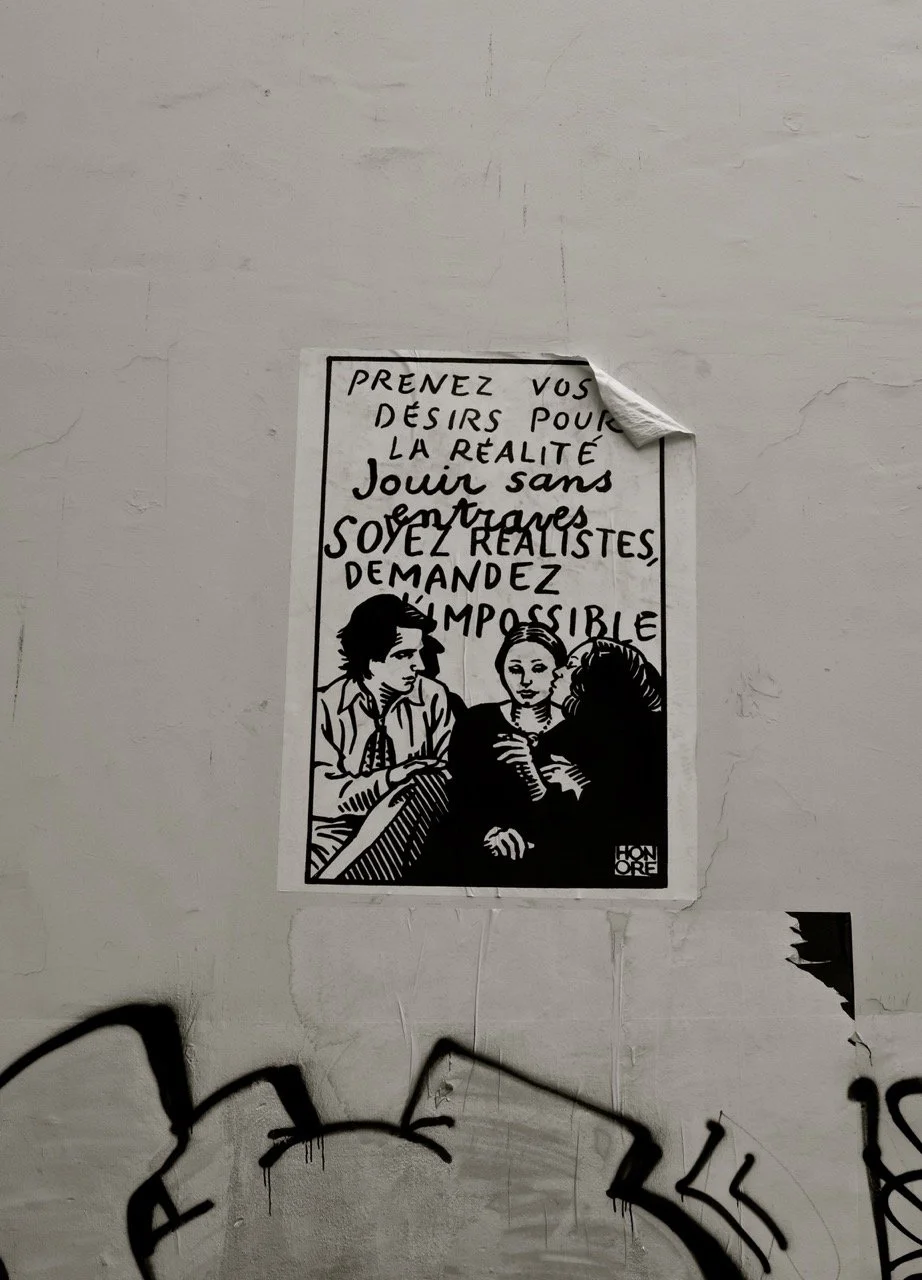 PRENEZ VOS
DÉSIRS POUR
LA RÉALITÉ
Jouir sans
entraves
SOYEZ RÉALISTES,
DEMANDEZ
L'IMPOSSIBLE
HON
ORE